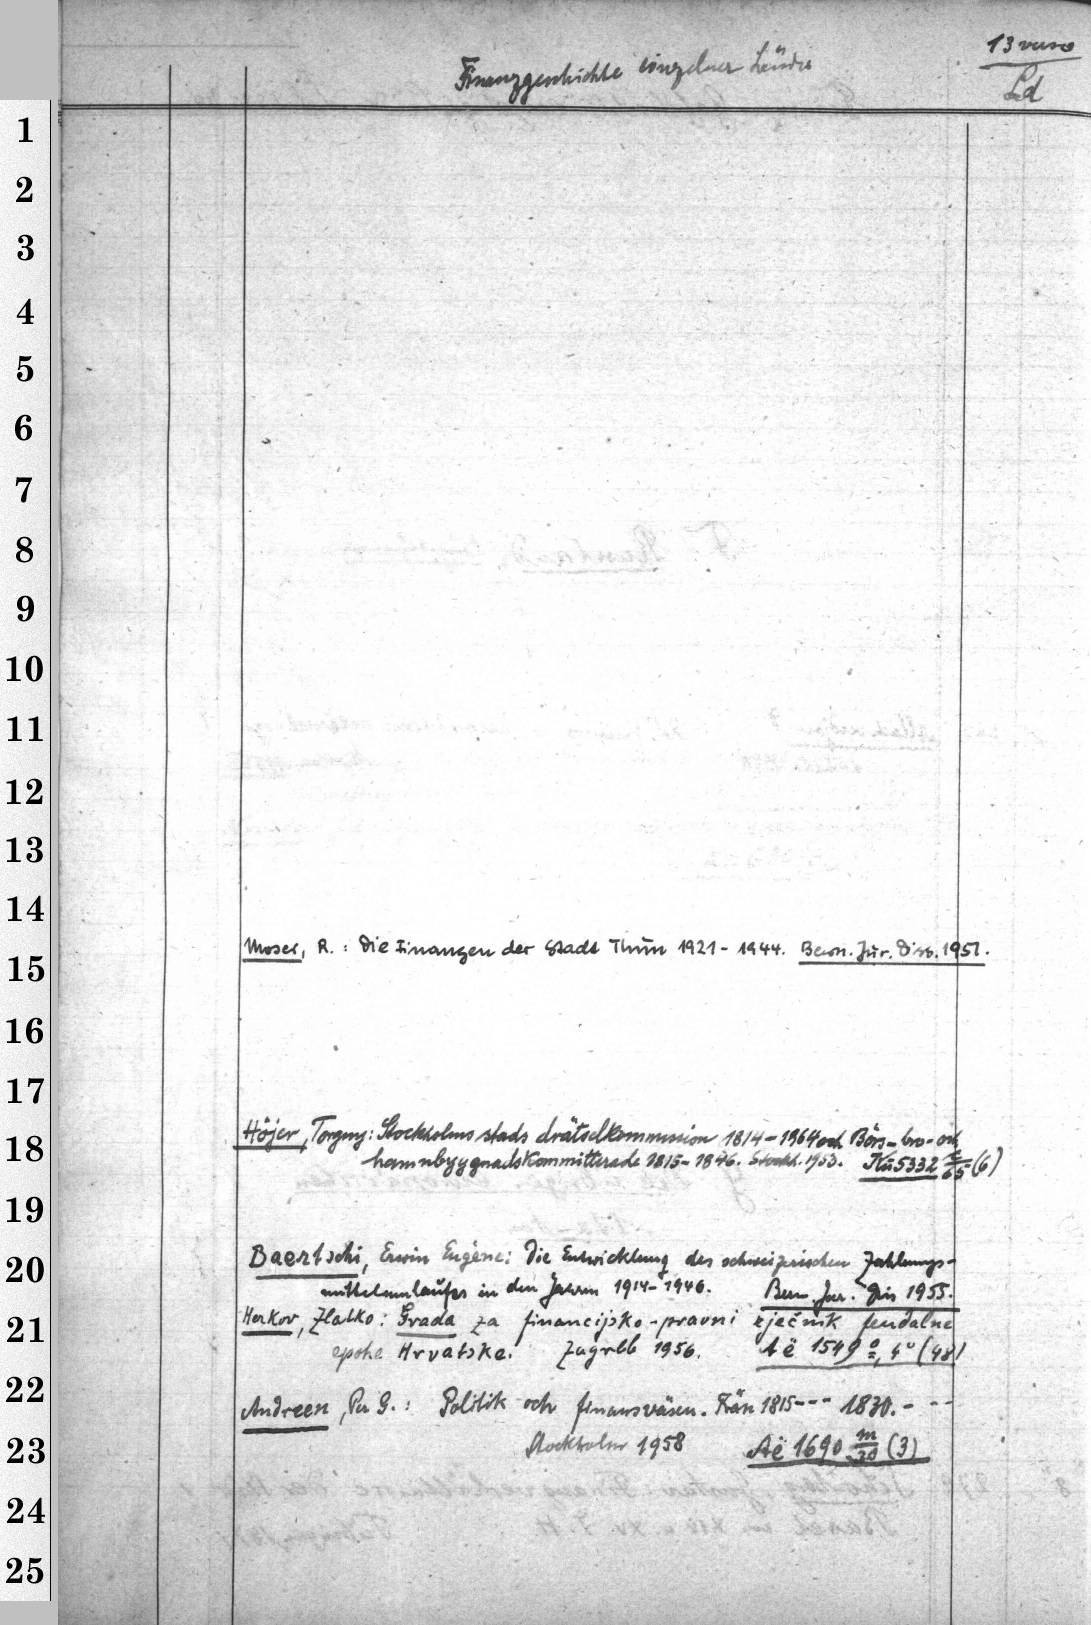 13 verso
Finanzgeschichte einzelner Länder
Ld
1
2
3
4
5
6
7
8
9
10
11
12
13
14
Moser, R.: Die Finanzen der Stadt Thun 1921-1944. Bern. Jur. Diss. 1951.
15
16
17
Höjer, Torgny: Stockholms stads drätselkommission 1814-1964 och Börs- bro- och
18
hamnbyggnadskommitterade 1815-1846. Stockh. 1953. Kü 5332 (6)
19
Baertschi, Erwin Eugène: Die Entwicklung des schweizerischen Zahlungs-
20
mittelumlaufes in den Jahren 1914-1946. Bern. Jur. Diss 1955.
21
Herkov, Zlatko: Građa za financijsko-pravni rječnik feudalne
epohe Hrvatske. Zagreb 1956. Aë 1549 o, 4° (48)
22
Andreen, Per G.: Politik och finansväsen. Från 1815--- 1830.- --
23
Stockholm 1958 Aë 1690 m/20 (3)
24
25